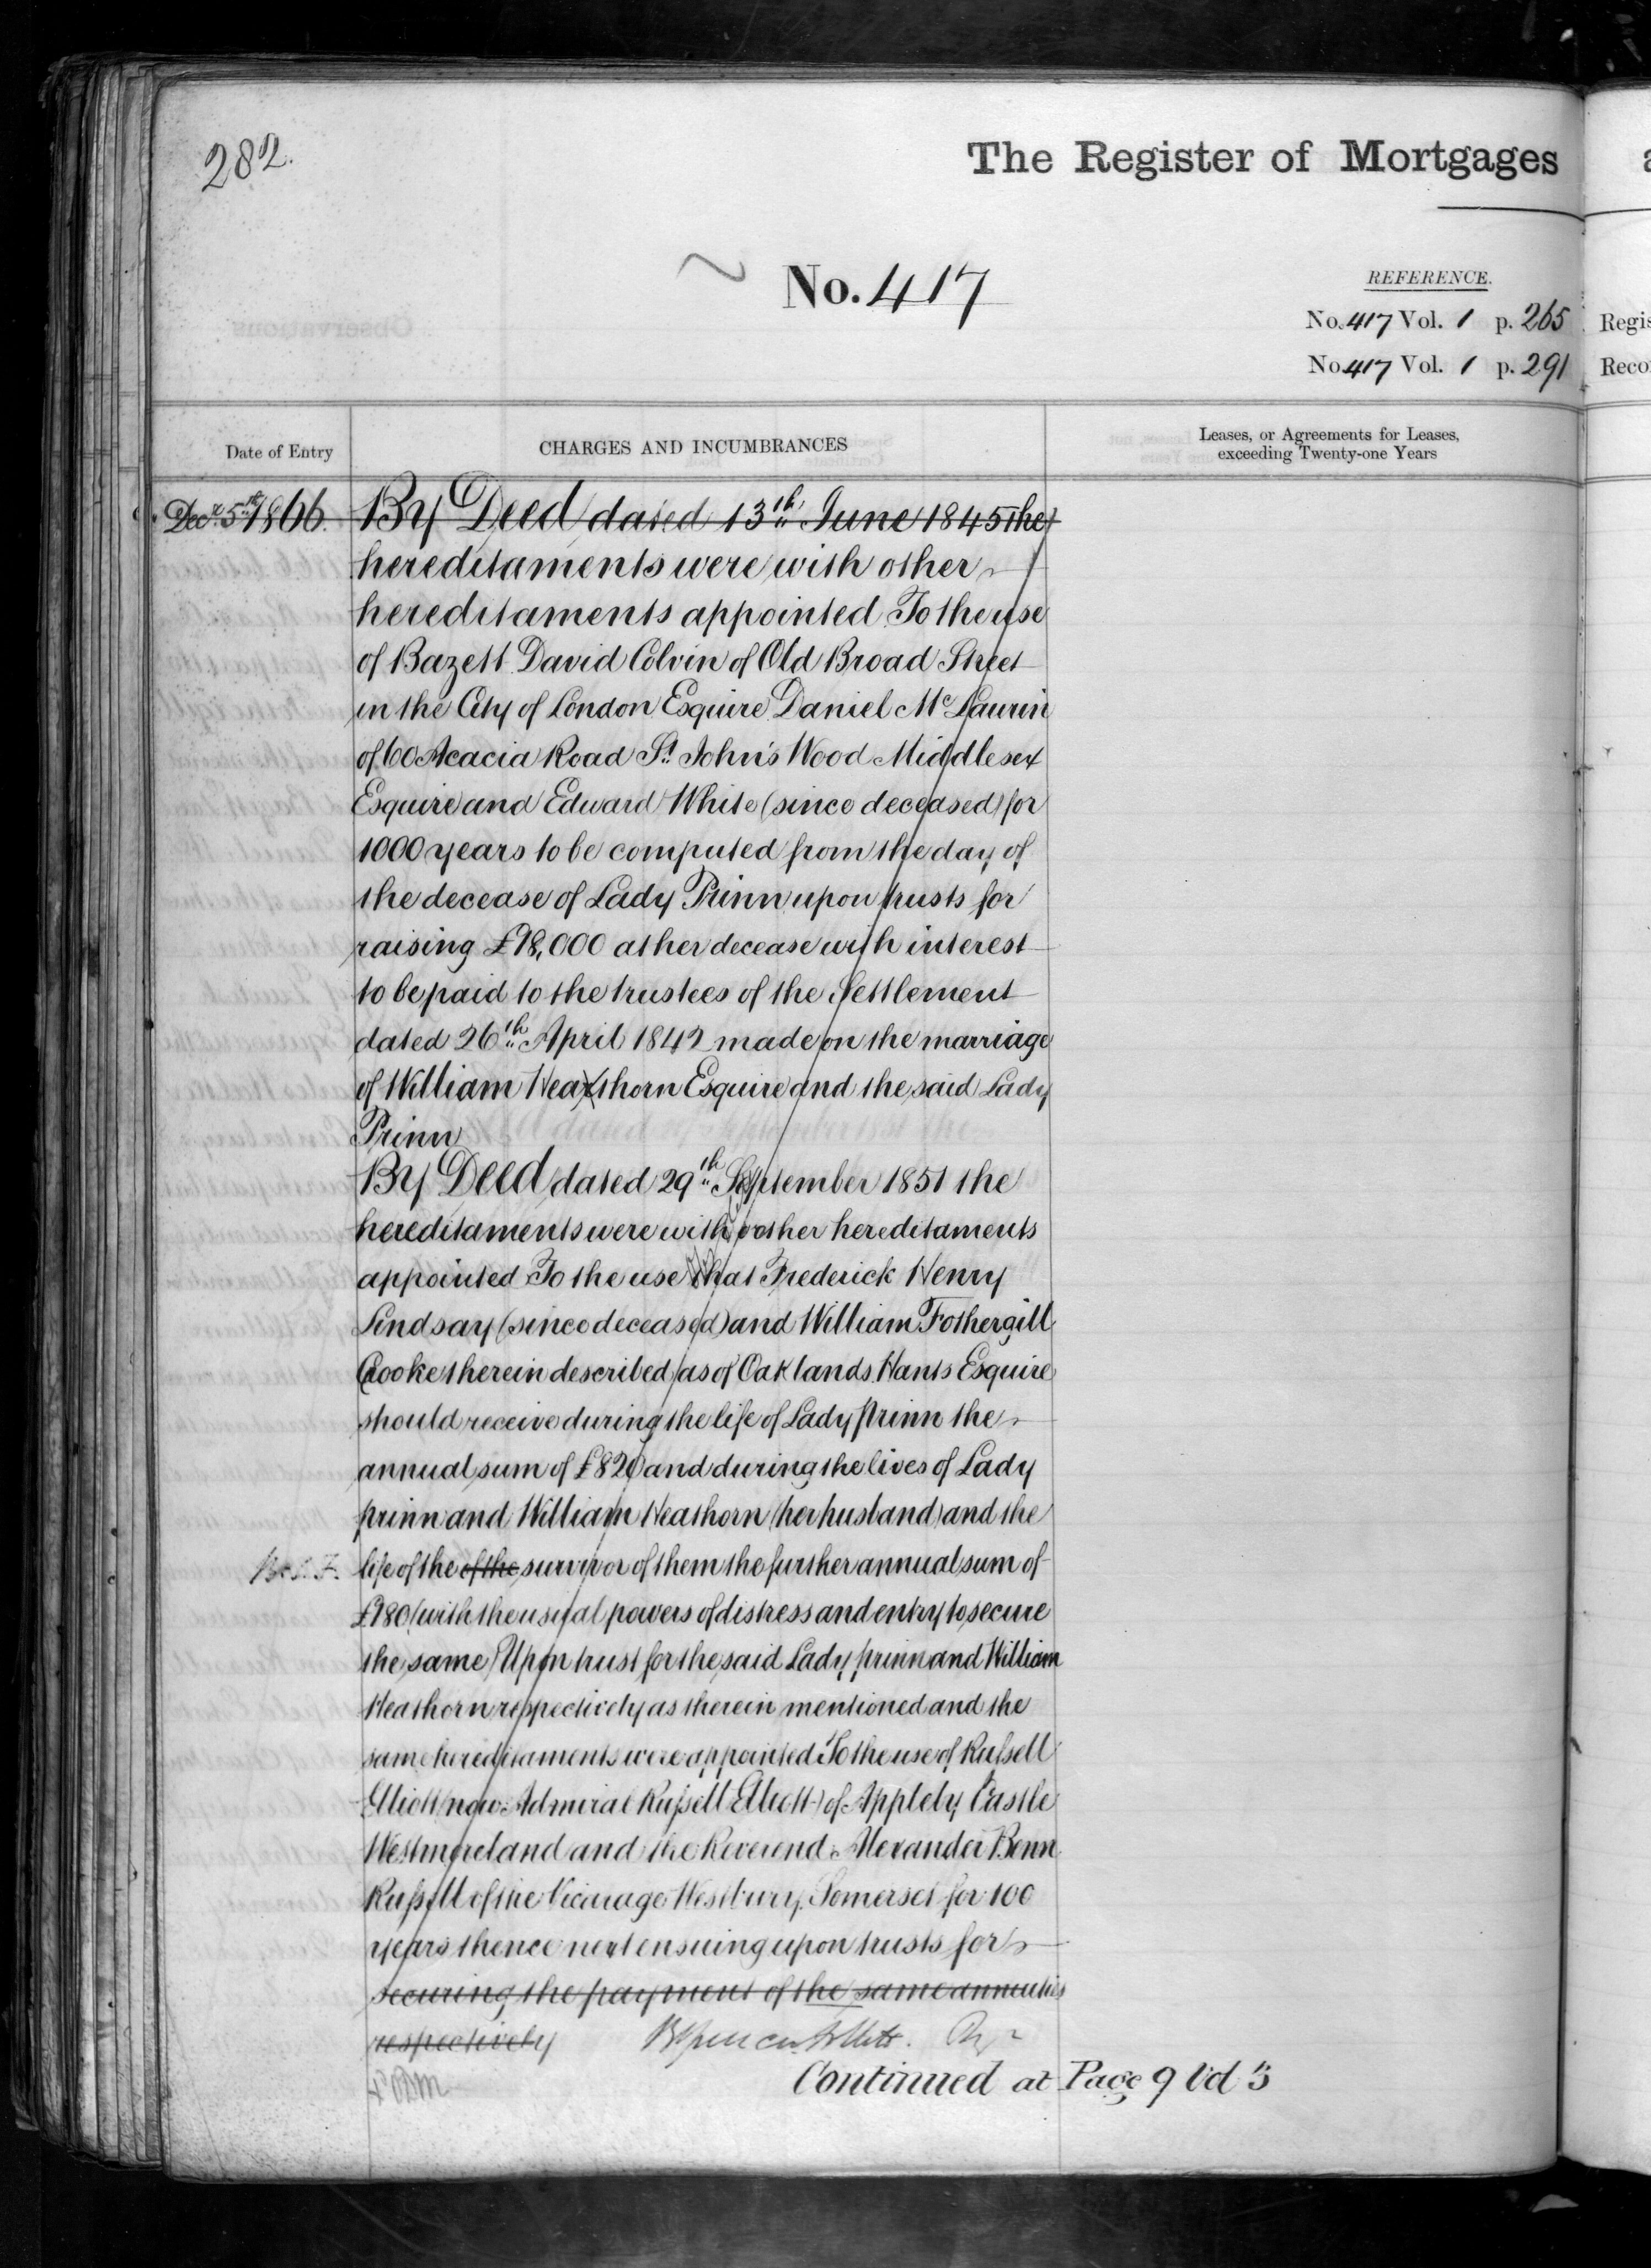 282.
The Register of Mortgages
No. 417
REFERENCE.
No. 417 Vol. 1 p. 265
Regis
No 417 Vol. 1 p. 291
Reco
Date of Entry
CHARGES AND INCUMBRANCES
Leases, or Agreements for Leases,
exceeding Twenty-one Years
Decr 5th 1866. By Deed dated 13th June 1845 the
hereditaments were with other
hereditaments appointed To the use
of Bazett David Colvin of Old Broad Street
in the City of London Esquire Daniel McLaurin
of 60 Acacia Road St. John's Wood Middlesex
Esquire and Edward White (since deceased) for
1000 years to be computed from the day of
the decease of Lady Prinn upon trusts for
raising £18,000 at her decease with interest
to be paid to the trustees of the Settlement
dated 26th April 1842 made on the marriage
of William Heathorn Esquire and the said Lady
Prinn
By Deed dated 29th September 1851 the
hereditaments were with other hereditaments
appointed To the use that Frederick Henry
Lindsay (since deceased) and William Fothergill
Cooke therein described as of Oaklands Hants Esquire
should receive during the life of Lady Prinn the
annual sum of £820 and during the lives of Lady
prinn and William Heathorn (her husband) and the
life of the of the survivor of them the further annual sum of
£180 (with the usual powers of distress and entry to secure
the same) Upon trust for the said Lady prinn and William
Heathorn respectively as therein mentioned and the
same hereditaments were appointed To the use of Russell
Elliott (now Admiral Russell Elliott) of Appleby Castle
Westmoreland and the Reverend Alexander Benn
Russell of the Vicarage Westbury Somerset for 100
years thence next ensuing upon trusts for
securing the payment of the same annuities
respectively
Continued at Page 9 Vol 3